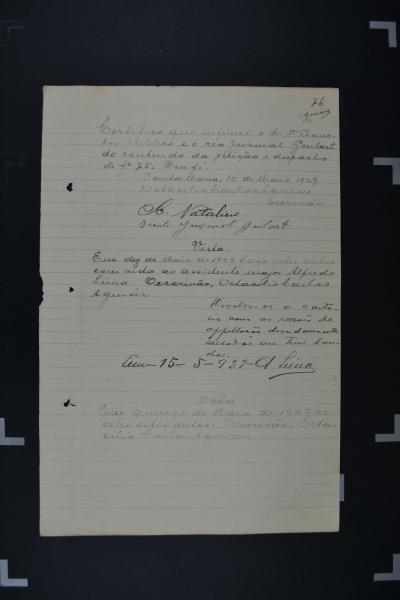 76
Certifico que intimei o dr. Promo-
tor Publico e o réo Juvenal Goulart
do conteudo da petição e despacho
de fs 75. Dou fé.
Santa Maria, 10 de Maio 1929
Octacilio Carlos Aguiar
Escrivão
Natalicio
Juvenal Gulart
Vista
Em dez de Maio de 1929 faço estes autos
com vista ao assistente major Alfredo
Lima. O escrivão, Octacilio Carlos
Aguiar
Devolvo-os a carto-
rio com as razões de
appellação devidamente
selladas em tres lau-
das.
Em 15-5-929 A. Lima
Data
Em quinze de Maio de 1929 re-
cebi estes autos. O escrivão, Octa-
cilio Carlos Aguiar